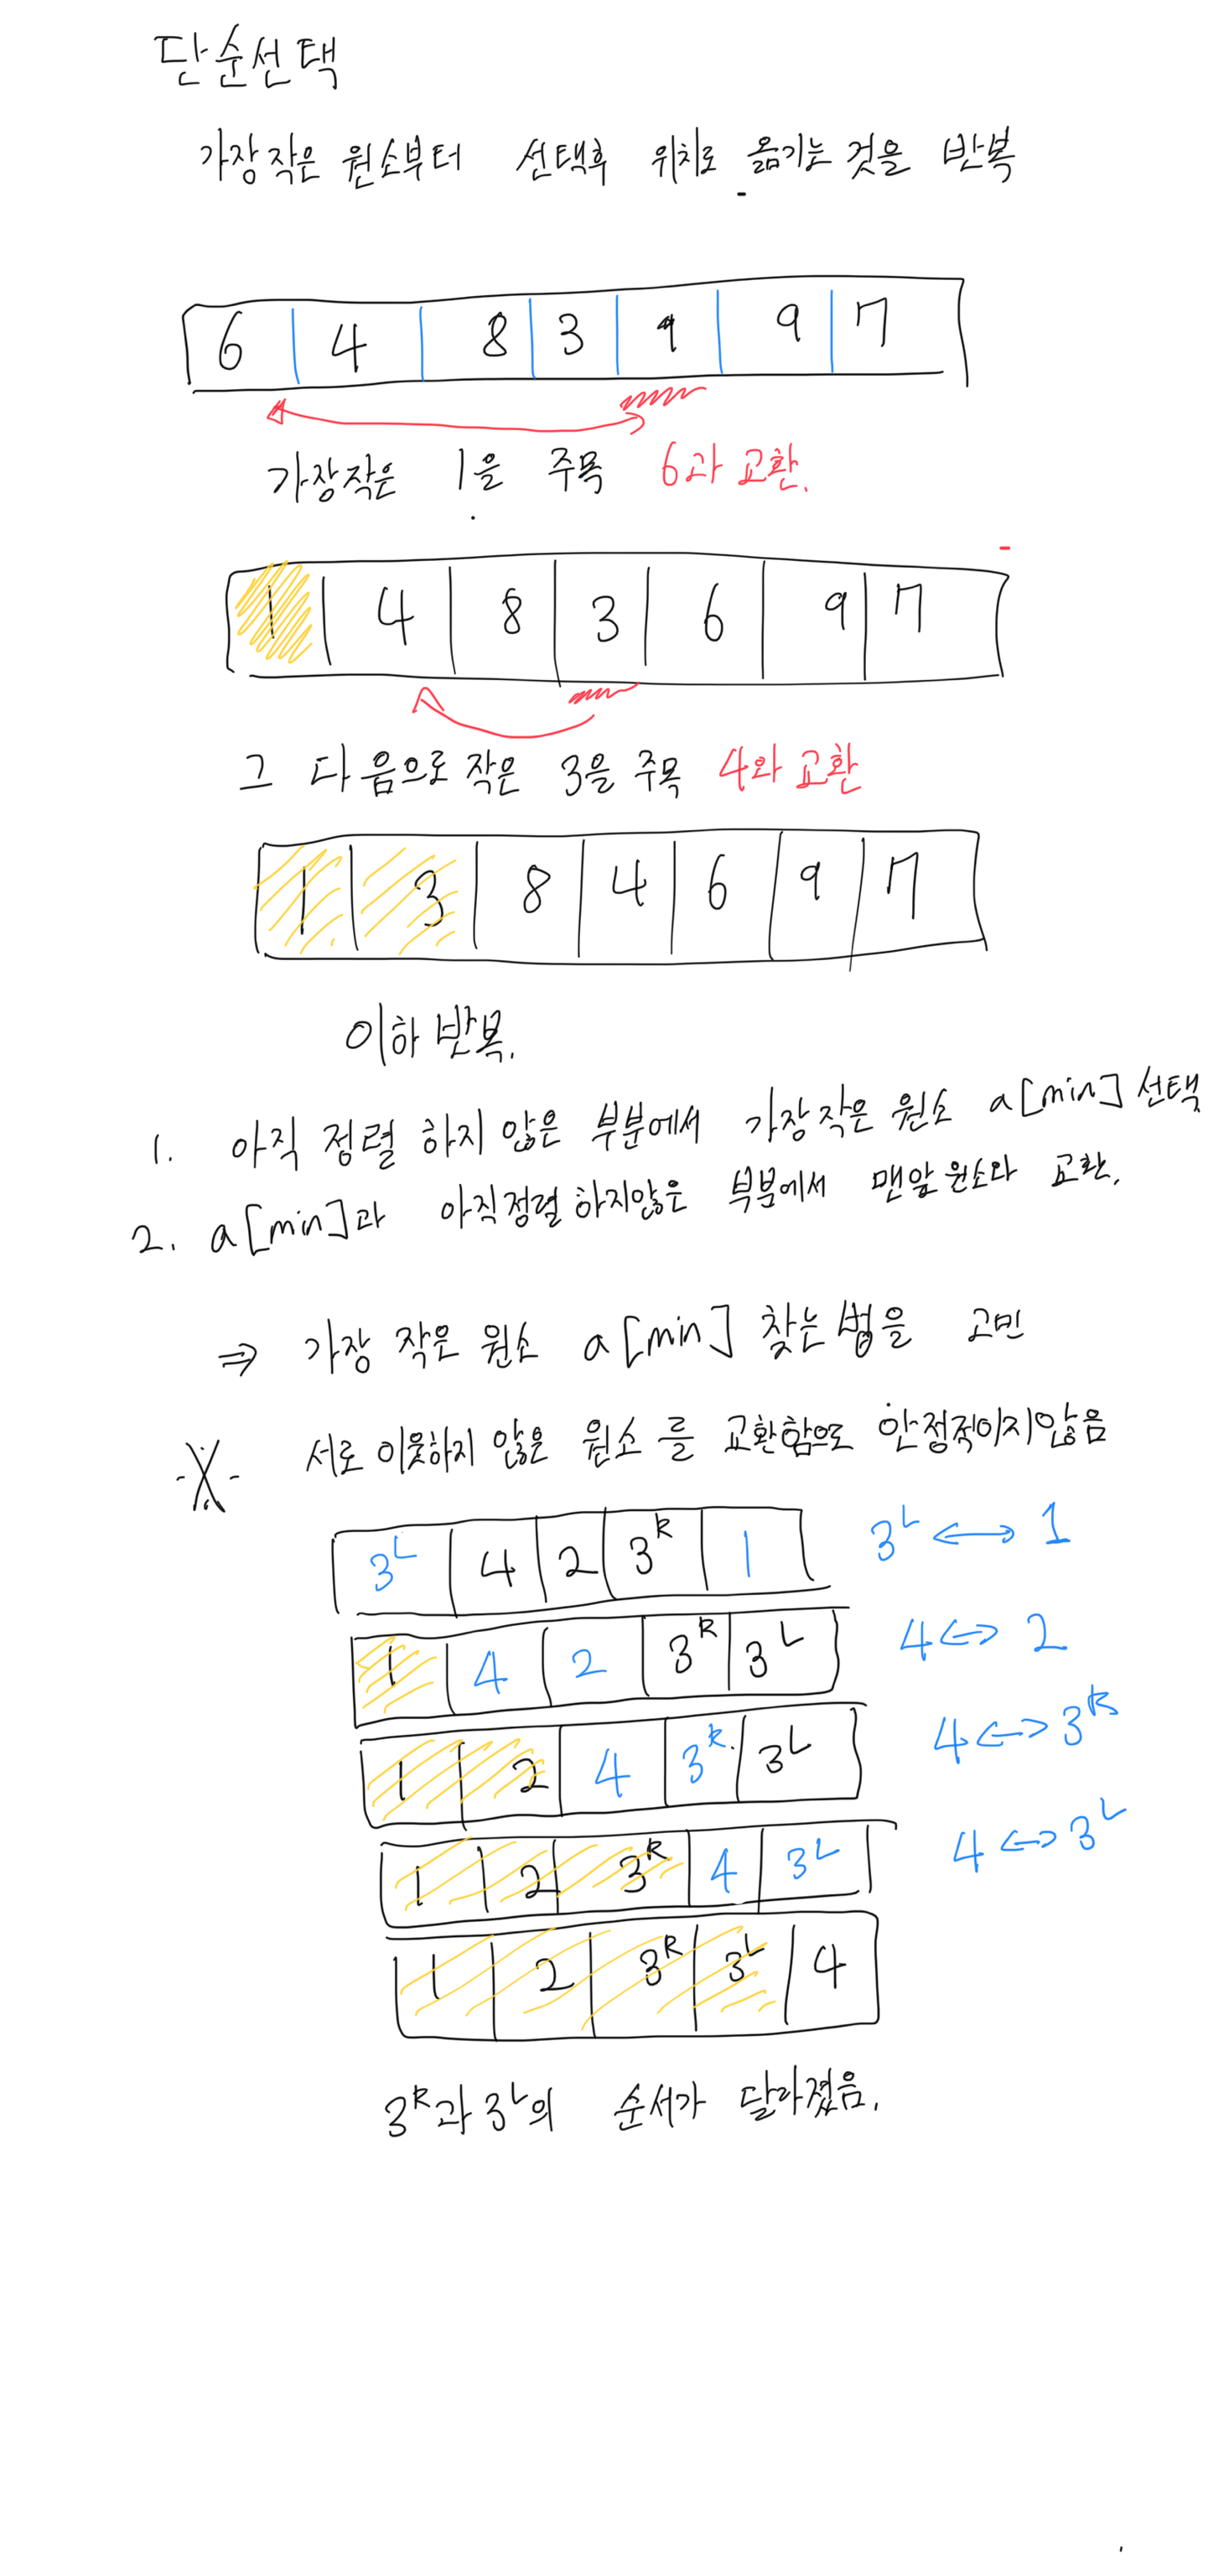 단순선택
가장 작은 원소부터 선택후 위치로 옮기는 것을 반복
6 4 8 3 9 7
가장작은 1을 주목 6과 교환.
1 4 8 3 6 9 7
그 다음으로 작은 3을 주목 4와 교환
1 3 8 4 6 9 7
이하 반복.
1. 아직 정렬 하지 않은 부분에서 가장 작은 원소 a[min] 선택
2. a[min]과 아직정렬하지않은 부분에서 맨앞원소와 교환.
⇒ 가장 작은 원소 a[min] 찾는법을 고민
※ 서로 이웃하지 않은 원소를 교환함으로 안정적이지않음
3ᴸ 4 2 3ᴿ 1 3ᴸ ↔ 1
1 4 2 3ᴿ 3ᴸ 4 ↔ 2
1 2 4 3ᴿ 3ᴸ 4 ↔ 3ᴿ
1 2 3ᴿ 4 3ᴸ 4 ↔ 3ᴸ
1 2 3ᴿ 3ᴸ 4
3ᴿ과 3ᴸ의 순서가 달라졌음.